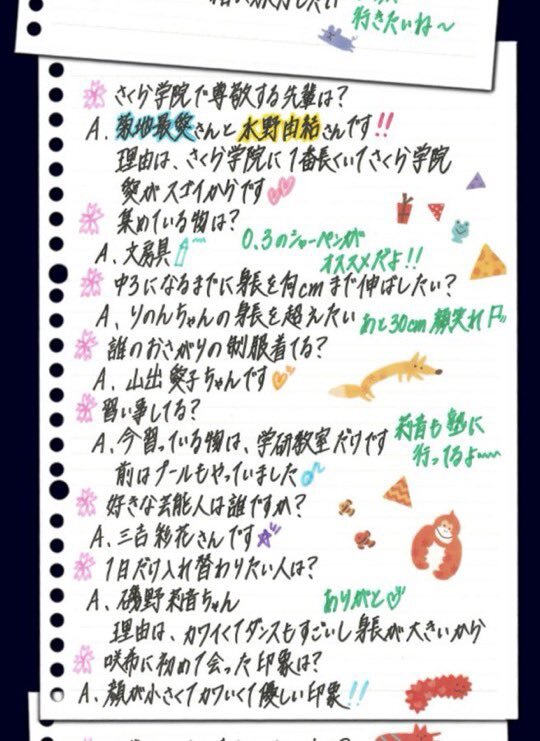 行きたいね〜
さくら学院で尊敬する先輩は?
A、菊地最愛さんと水野由結さんです!!
理由は、さくら学院に1番長くいてさくら学院
愛がスゴイからです
集めている物は?
A、文房具
0.3のシャーペンが
オススメだよ!!
中3になるまでに身長を何cmまで伸ばしたい?
A、りのんちゃんの身長を超えたい
あと30cm 頑張れ
誰のおさがりの制服着てる?
A、山出愛子ちゃんです
習い事してる?
A、今習っている物は、学研教室だけです
前はプールもやっていました
莉音も塾に
行ってるよ〜
好きな芸能人は誰ですか?
A、三吉彩花さんです
1日だけ入れ替わりたい人は?
A、磯野莉音ちゃん
ありがと
理由は、カワイくてダンスもすごいし身長が大きいから
咲希に初めて会った印象は?
A、顔が小さくてカワいくて優しい印象!!